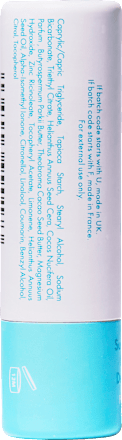 Caprylic/Capric Triglyceride, Tapioca Starch, Stearyl Alcohol, Sodium
Bicarbonate, Triethyl Citrate, Helianthus Annuus Seed Cera, Cocos Nucifera Oil,
Parfum, Butyrospermum Parkii Butter, Theobroma Cacao Seed Butter, Magnesium
Hydroxide, Zinc Ricinoleate, Tocopheryl Acetate, Limonene, Helianthus Annuus
Seed Oil, Alpha-Isomethyl Ionone, Citronellol, Linalool, Coumarin, Benzyl Alcohol,
Citral, Tocopherol
If batch code starts with U, made in UK
If batch code starts with F, made in France
For external use only